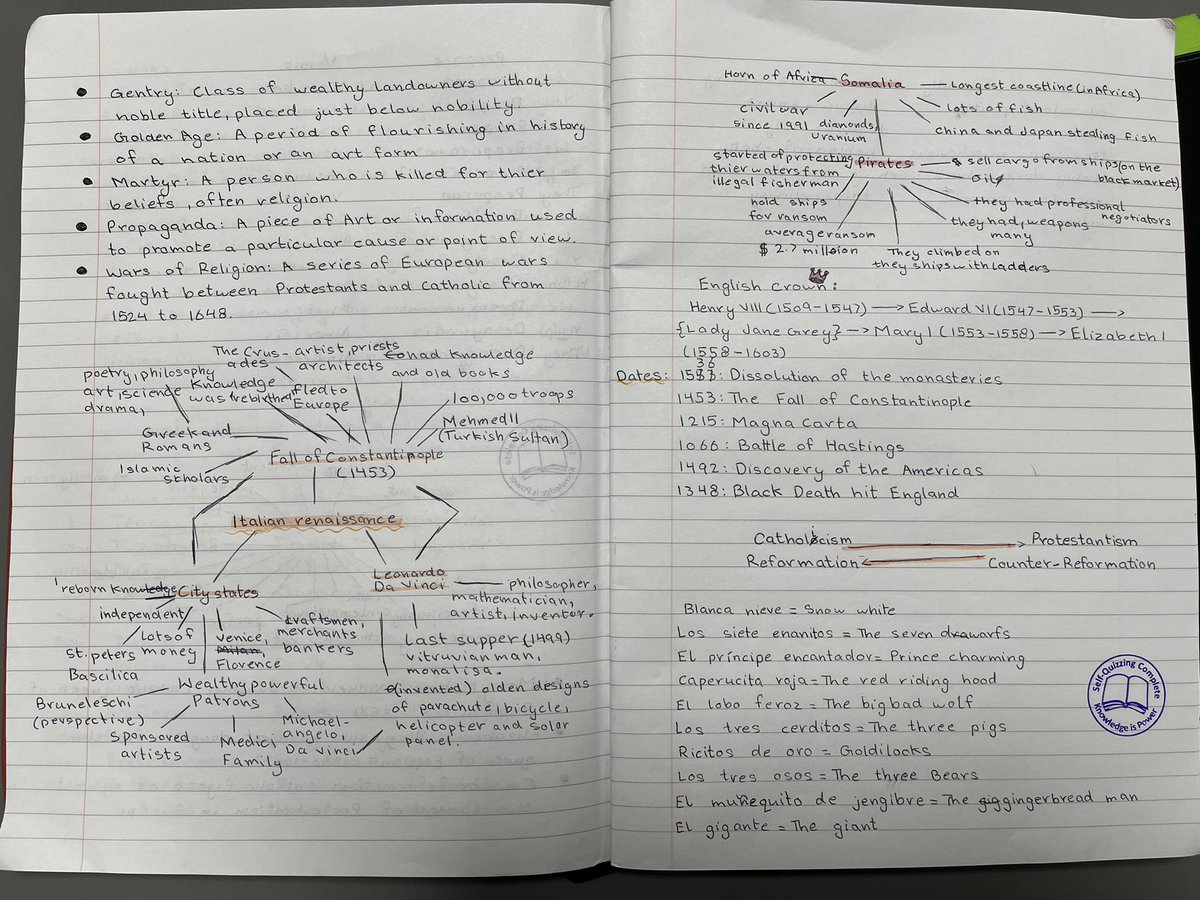 Gentry: Class of wealthy landowners without
noble title, placed just below nobility.
Golden Age: A period of flourishing in history
of a nation or an art form
Martyr: A person who is killed for thier
beliefs, often religion.
Propaganda: A piece of Art or information used
to promote a particular cause or point of view.
Wars of Religion: A series of European wars
fought between Protestants and Catholic from
1524 to 1648.
The Crus-ades
artist, priests
architects
fled to
Europe
had knowledge
and old books
poetry, philosophy
art, science
drama,
Knowledge
was 'rebirthed'
100,000 troops
Mehmed II
(Turkish Sultan)
Greek and
Romans
Islamic
scholars
Fall of Constantinople
(1453)
Italian renaissance
'reborn knowledge
City states
independent
lots of
money
St. peters
Bascilica
Venice,
Milan,
Florence
craftsmen,
merchants
bankers
Wealthy powerful
Patrons
Bruneleschi
(perspective)
sponsored
artists
Medici
Family
Michael-
angelo,
Da vinci
Leonardo
Da Vinci
philosopher,
mathematician,
artist, inventor.
Last supper (1499)
vitruvian man,
monalisa.
(invented) olden designs
of parachute, bicycle,
helicopter and solar
panel.
Horn of Africa
Somalia
Longest coastline (in Africa)
lots of fish
China and Japan stealing fish
civil war
since 1991
diamonds,
uranium
started of protecting
thier waters from
illegal fisherman
Pirates
sell cargo from ships (on the
black market)
oil
they had professional
negotiators
they had many weapons
They climbed on
they ships with ladders
hold ships
for ransom
average ransom
$ 2.7 million
English Crown:
Henry VIII (1509-1547) → Edward VI (1547-1553) →
{Lady Jane Grey} → Mary I (1553-1558) → Elizabeth I
(1558-1603)
Dates: 1536: Dissolution of the monasteries
1453: The Fall of Constantinople
1215: Magna Carta
1066: Battle of Hastings
1492: Discovery of the Americas
1348: Black Death hit England
Catholicism → Protestantism
Reformation ← Counter-Reformation
Blanca nieve = Snow white
Los siete enanitos = The seven dwarfs
El príncipe encantador = Prince charming
Caperucita roja = The red riding hood
El lobo feroz = The big bad wolf
Los tres cerditos = The three pigs
Ricitos de oro = Goldilocks
Los tres osos = The three Bears
El muñequito de jengibre = The gingerbread man
El gigante = The giant
Self-Quizzing Complete
Knowledge is Power